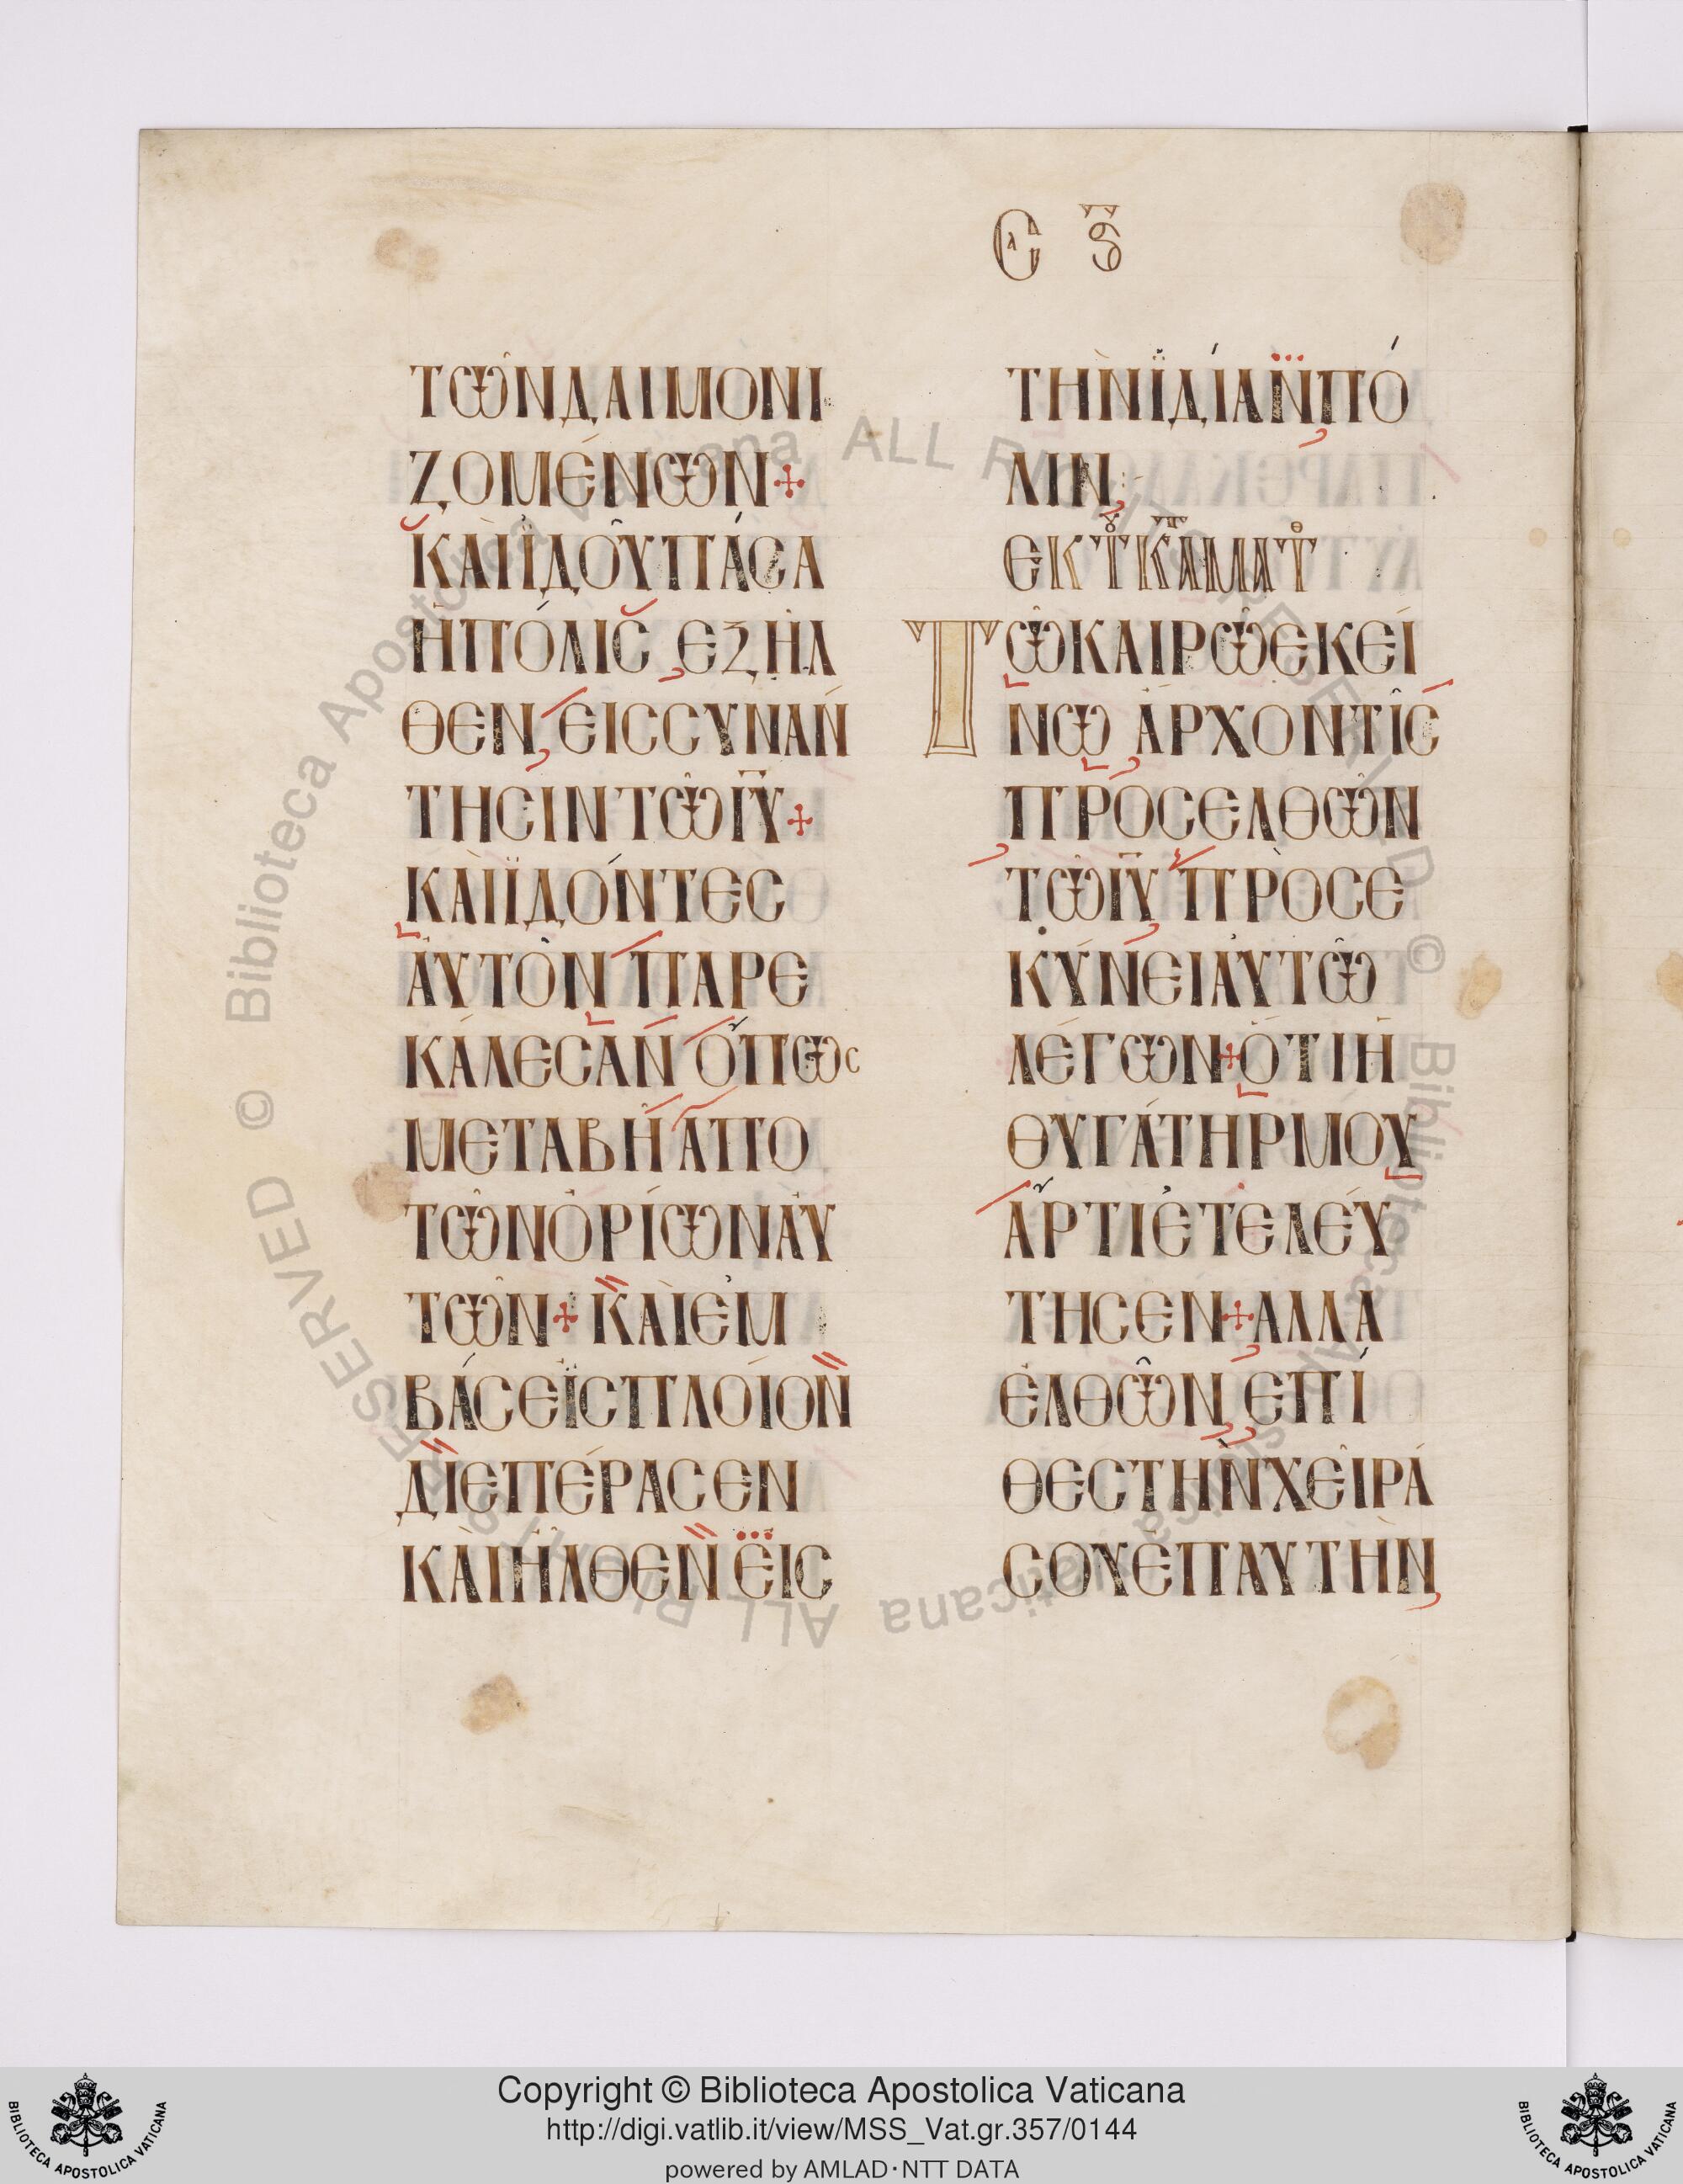 Ϲ Ϛ
ΤΩΝΔΑΙΜΟΝΙ
ΖΟΜΕΝΩΝ+
ΚΑΙΪΔΟΥΠΑϹΑ
ΗΠΟΛΙϹ ΕΞΗΛ
ΘΕΝ ΕΙϹϹΥΝΑΝ
ΤΗϹΙΝΤΩΙΥ+
ΚΑΙΪΔΟΝΤΕϹ
ΑΥΤΟΝ ΠΑΡΕ
ΚΑΛΕϹΑΝ ΟΠΩϹ
ΜΕΤΑΒΗ ΑΠΟ
ΤΩΝΟΡΙΩΝΑΥ
ΤΩΝ+ ΚΑΙΕΜ
ΒΑϹΕΪϹΠΛΟΙΟΝ
ΔΙΕΠΕΡΑϹΕΝ
ΚΑΙΗΛΘΕΝ ΕΙϹ
ΤΗΝΪΔΙΑΝΠΟ
ΛΙΝ
ΕΚ Τ Κ ΜΑΤ
ΤΩΚΑΙΡΩΕΚΕΙ
ΝΩ ΑΡΧΟΝΤΙϹ
ΠΡΟϹΕΛΘΩΝ
ΤΩΙΥ ΠΡΟϹΕ
ΚΥΝΕΙΑΥΤΩ
ΛΕΓΩΝ+ΟΤΙΗ
ΘΥΓΑΤΗΡΜΟΥ
ΑΡΤΙΕΤΕΛΕΥ
ΤΗϹΕΝ+ΑΛΛΑ
ΕΛΘΩΝ ΕΠΙ
ΘΕϹΤΗΝΧΕΙΡΑ
ϹΟΥΕΠΑΥΤΗΝ
© Biblioteca Apostolica Vaticana ALL RIGHTS RESERVED © Biblioteca Apostolica Vaticana ALL RIGHTS RESERVED
Copyright © Biblioteca Apostolica Vaticana
http://digi.vatlib.it/view/MSS_Vat.gr.357/0144
powered by AMLAD·NTT DATA
BIBLIOTECA APOSTOLICA VATICANA
BIBLIOTECA APOSTOLICA VATICANA